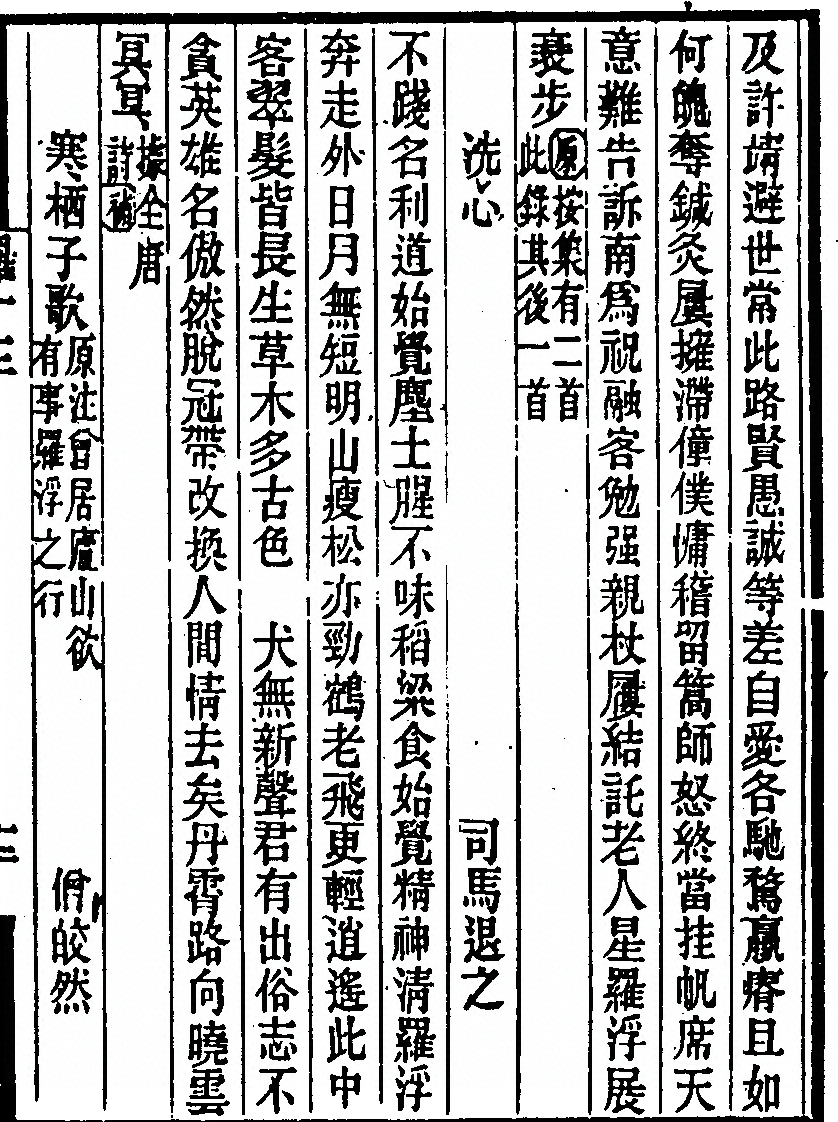 及許靖避世常此路賢愚誠等差自愛各馳騖羸瘠且如
何魄奪鍼灸屢擁滯僮僕慵稽留篙師怒終當挂帆席天
意難告訴南爲祝融客勉强親杖屨結託老人星羅浮展
衰步原按集有二首
此錄其後一首
洗心 司馬退之
不踐名利道始覺塵土腥不味稻粱食始覺精神淸羅浮
奔走外日月無短明山瘦松亦勁鶴老飛更輕逍遙此中
客翠髮皆長生草木多古色 犬無新聲君有出俗志不
貪英雄名傲然脫冠帶改換人間情去矣丹霄路向曉雲
冥冥據全唐
詩補
寒栖子歌原注曾居廬山欲
有事羅浮之行 僧皎然